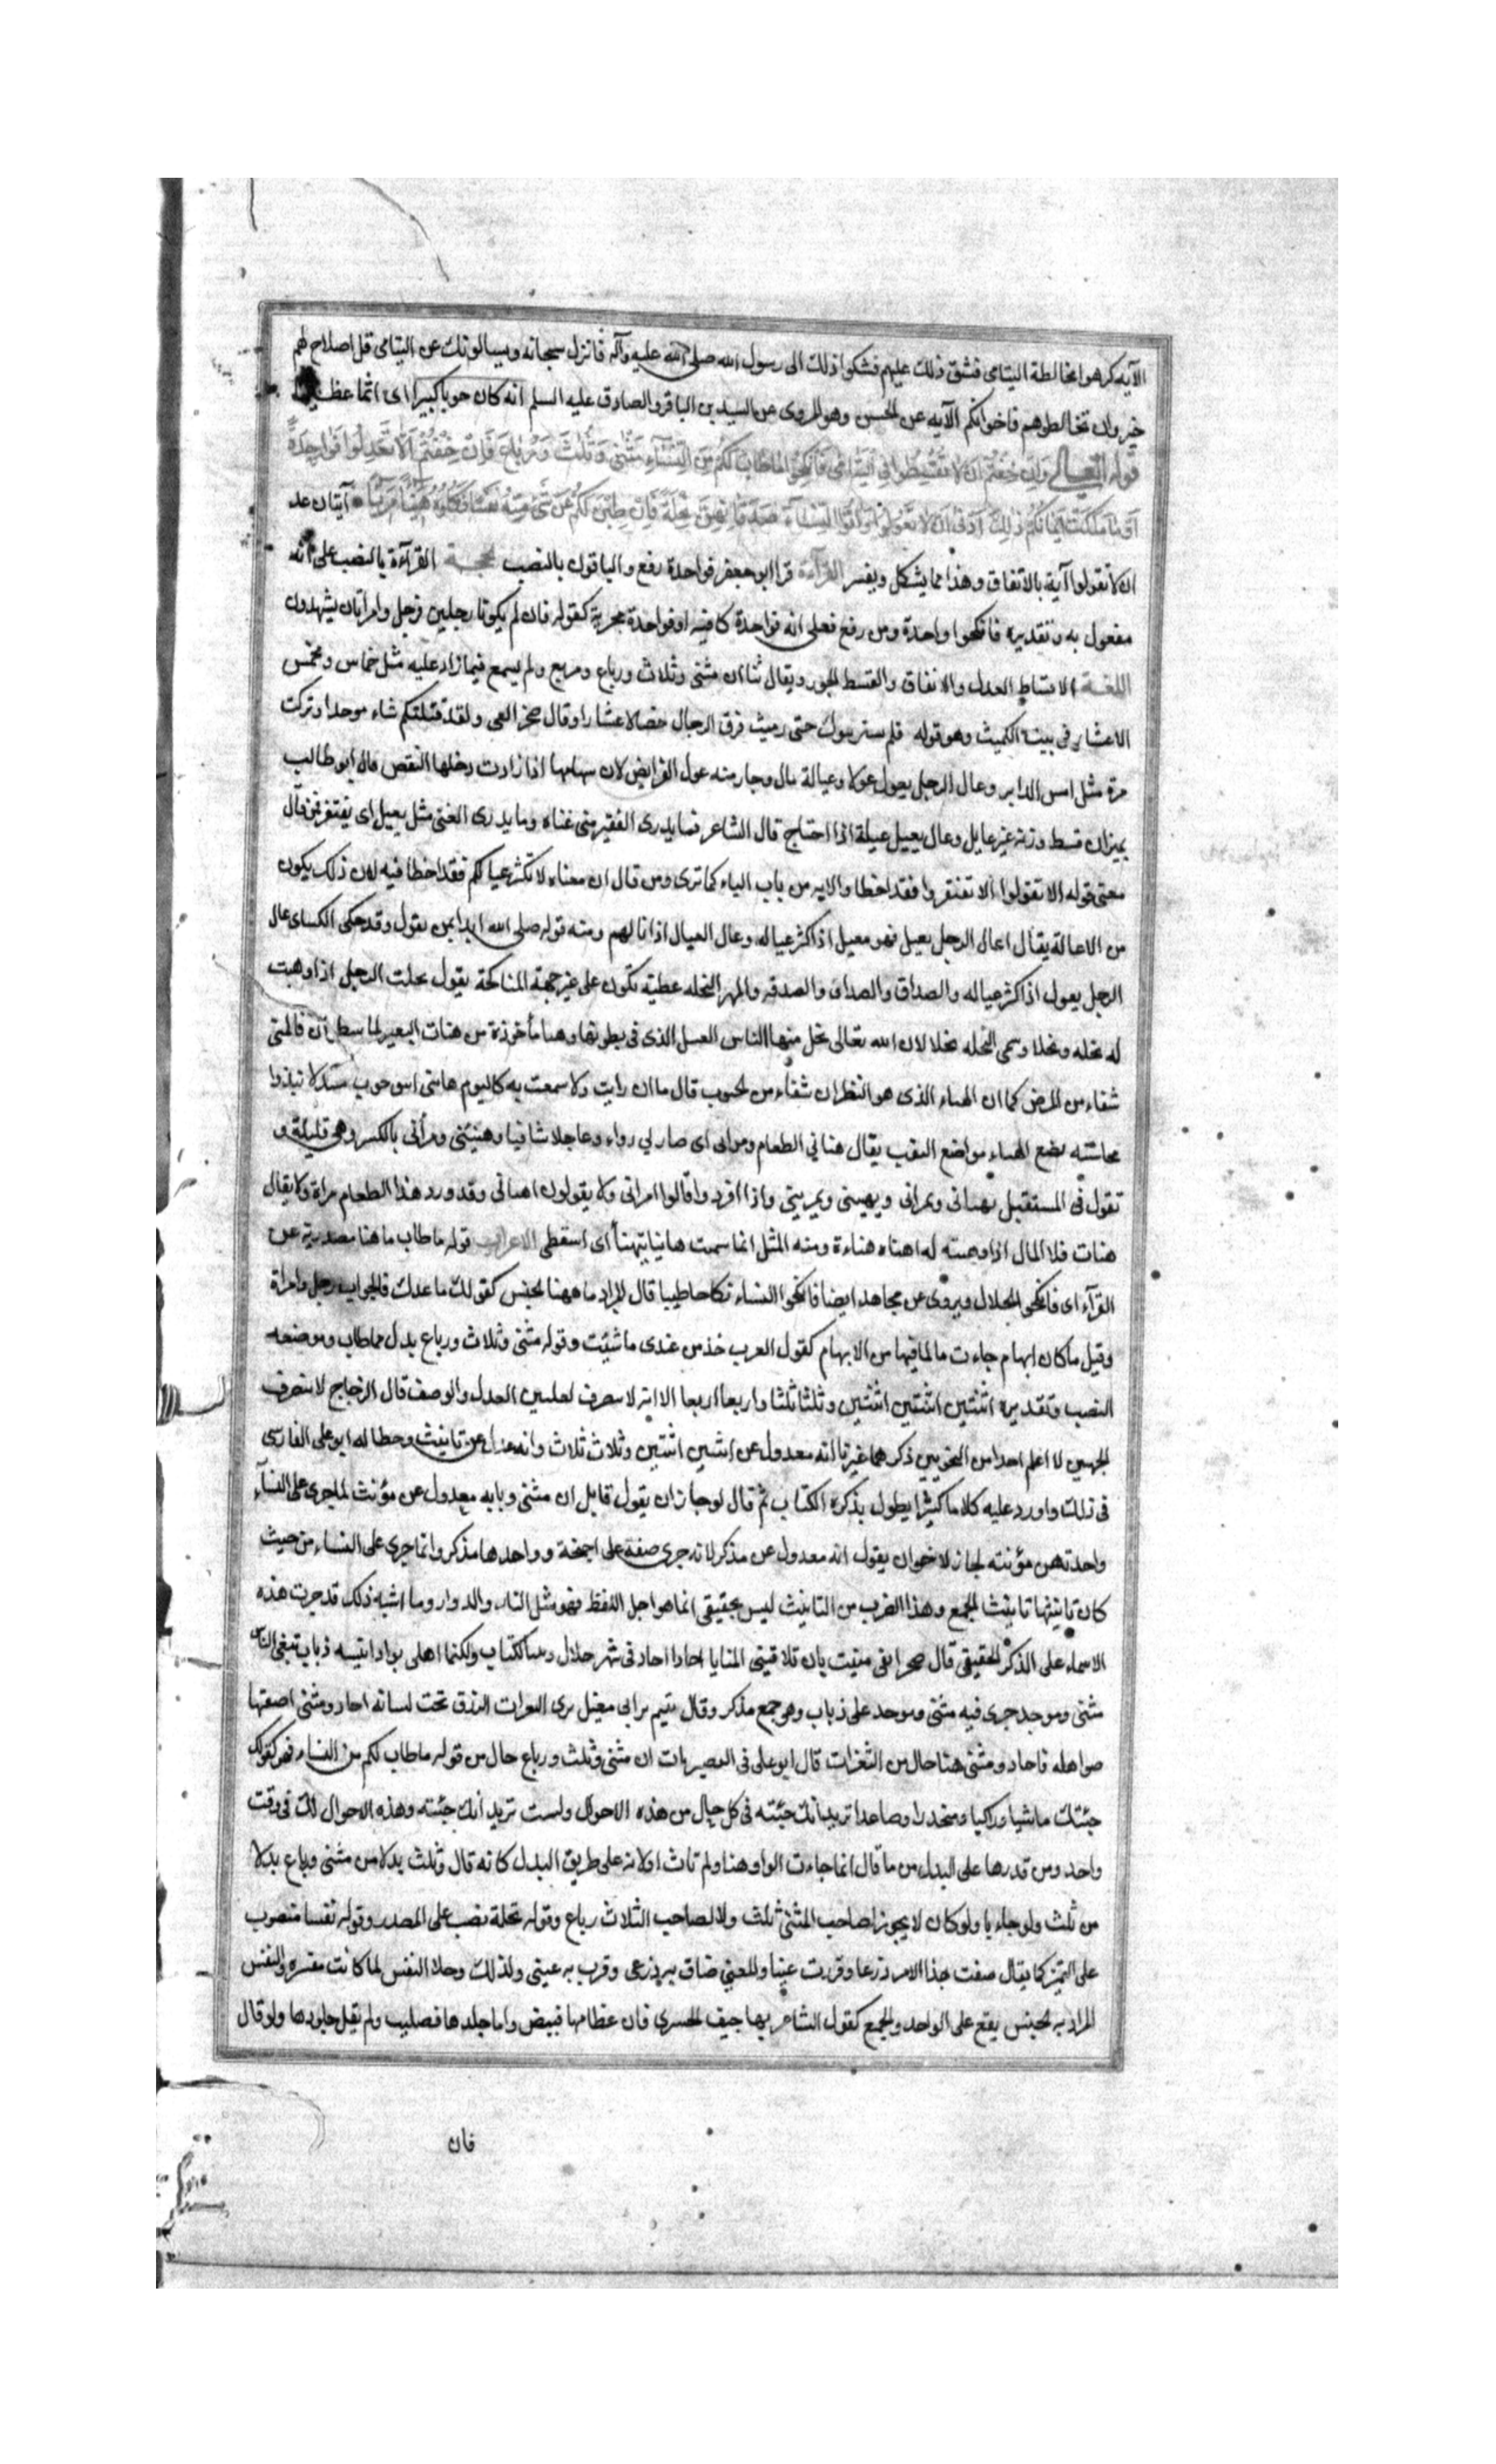 الآيه كرهوا مخالطة اليتامى فشق ذلك عليهم فشكوا ذلك الى رسول الله صلى الله عليه وآله فانزل سبحانه ويسالونك عن اليتامى قل اصلاح لهم
خير وان تخالطوهم فاخوانكم الآيه عن الحسن وهو المروى عن السيدين الباقر والصادق عليه السلم انه كان حوبا كبيرا اى اثما عظيما
قوله تعالى وَاِنْ خِفْتُمْ اَنْ لا تُقْسِطُوا فِي اليَتَامَى فَانْكِحُوا مَا طَابَ لَكُمْ مِنَ النِّسَاءِ مَثْنَى وَثُلثَ وَرُبَاعَ فَاِنْ خِفْتُمْ اَلا تَعْدِلُوا فَوَاحِدَةً
اَوْ مَا مَلَكَتْ اَيْمَانُكُمْ ذلِكَ اَدْنَى اَنْ لا تَعُولُوا وَآتُوا النِّسَاءَ صَدُقَاتِهِنَّ نِحْلَةً فَاِنْ طِبْنَ لَكُمْ عَنْ شَىْءٍ مِنْهُ نَفْسًا فَكُلُوهُ هَنِيئًا مَرِيئًا آيتان عد
ان لا تعولوا آية بالاتفاق وهذا مما يشكل ويفسر القراءة قرا ابو جعفر فواحدة رفع والباقون بالنصب الحجة القراءة بالنصب على انه
مفعول به وتقديره فانكحوا واحدة ومن رفع فعلى انه فواحدة كافيه او فواحدة مجزية كقوله فان لم يكونا رجلين فرجل وامراتان يشهدون
اللغة الاقساط العدل والانفاق والقسط الجور ويقال ثنا ان مثنى وثلاث ورباع ومربع ولم يسمع فيما زاد عليه مثل خماس ومخمس
الا عشار فى بيت الكميت وهو قوله فلم يستريبوك حتى رميت فوق الرجال خصالا عشارا وقال صخر الغى ولقد قتلتكم ثناء موحدا وتركت
مرة مثل امس الدابر وعال الرجل يعول عولا وعيالة مال وجار منه عول الفرايض لان سهامها اذا زادت دخلها النقص قال ابو طالب
بميزان قسط وزنه غير عايل وعال يعيل عيلة اذا احتاج قال الشاعر فما يدرى الفقير متى غناه وما يدرى الغنى متى يعيل اى يفتقر فمن قال
معنى قوله الا تعولوا الا تفتقروا فقد اخطا والايه من باب الياء كما ترى ومن قال ان معناه لا تكثر عيالكم فقد اخطا فيه لان ذلك يكون
من الاعالة يقال اعال الرجل يعيل فهو معيل اذا كثر عياله وعال العيال اذا مالهم ومنه قوله صلى الله ابدا بمن يعول وقد حكى الكساى عال
الرجل يعول اذا كثر عياله والصداق والصداق والصدقه والمهر النحله عطية تكون على غير جهة المثامنة يقول نحلت الرجل اذا وهبت
له نحله ونحلا وسمى النحله نحلا لان الله تعالى نحل منها الناس العسل الذى فى بطونها وهنيا مأخوذة من هنات البعير
شفاء من المرض كما ان الهناء الذى هو القطران شفاء من الجرب قال ما ان رايت ولا سمعت به كاليوم هانى اينق جرب متبذلا تبذوا
محاسنه يضع الهناء مواضع النقب يقال هناني الطعام ومرانى اى صار لي دواء وعلاجا شافيا وهنيئنى ومرأنى بالكسر وهى قليلة و
تقول فى المستقبل يهنانى ويمرانى ويهنينى ويمرينى واذا افردوا قالوا امرانى ولا يقولون اهنانى وقد ورد هذا الطعام مراة ولا يقال
هنات فلانا المال اذا وهبته له اهناه هناءة ومنه المثل انما سميت هانيا لتهنأ اى لتعطى الاعراب قوله ما طاب ما هنا مصدرية عن
الفراء اى فانكحوا الحلال ويروى عن مجاهد ايضا فانكحوا النساء نكاحا طيبا قال المراد ما ههنا الجنس كقولك ما عندك فالجواب رجل وامراة
وقيل ما كان ابهام جاءت ما لما فيها من الابهام كقول العرب خذ من عندى ما شئت وقوله مثنى وثلاث ورباع بدل مما طاب وموضعه
النصب وتقديره اثنتين اثنتين اثنتين وثلثا ثلثا واربعا اربعا الا انه لا ينصرف لعلتين العدل والوصف قال الزجاج لا ينصرف
لجهتين لا اعلم احدا من النحويين ذكرهما غيرنا انه معدول عن اثنتين اثنتين وثلاث ثلاث وانه عدل عن تانيث وخطاه ابو على الفارسى
فى ذلك واورد عليه كلاما كثيرا يطول بذكره الكتاب ثم قال لو جاز ان يقول قايل ان مثنى وبابه معدول عن مؤنث لما جرى على النساء
واحدتهن مؤنثه لجاز لاخر ان يقول انه معدول عن مذكر لانه جرى صفة على اجنحة وواحدها مذكر وانما جرى على النساء من حيث
كان تانيثها تانيث الجمع وهذا الضرب من التانيث ليس بحقيقى انما هو اجل اللفظ فهو مثل النار والدوار وما اشبه ذلك قد جرت هذه
الاسماء على الذكر الحقيقى قال صخر الغى منيت بان تلاقينى المنايا احادا احاد فى شهر حلال ومن الكتاب ولكنما اهلى بواد انيسه ذياب تبغى الناس
مثنى وموحد جرى فيه مثنى وموحد على ذياب وهو جمع مذكر وقال تميم بن ابى مقبل ترى النعرات الزرق تحت لبانه احاد ومثنى اصعقتها
صواهله فاحاد ومثنى هنا حال من النعرات قال ابو على فى البصريات ان مثنى وثلث ورباع حال من قوله ما طاب لكم من النساء فهو كقولك
جئتك ماشيا وراكبا ومنحدرا وصاعدا تريد انك جئته فى كل حال من هذه الاحوال ولست تريد انك جئته وهذه الاحوال لك فى وقت
واحد ومن قدرها على البدل من ما قال انما جاءت الواو هنا ولم تات او لانه على طريق البدل كانه قال وثلث بدلا من مثنى ورباع بدلا
من ثلث ولو جاء باو لكان لا يجوز لصاحب المثنى ثلث ولا لصاحب الثلاث رباع وقوله نحلة نصب على المصدر وقوله نفسا منصوب
على التميز كما يقال ضقت بهذا الامر ذرعا وقررت عينا والمعنى ضاق به ذرعى وقرت به عينى ولذلك وحد النفس لما كانت مفسره والنفس
المراد به الجنس يقع على الواحد والجمع كقول الشاعر بها جيف الحسرى فان عظامها فبيض واما جلدها فصليب ولم يقل جلودها ولو قال
فان